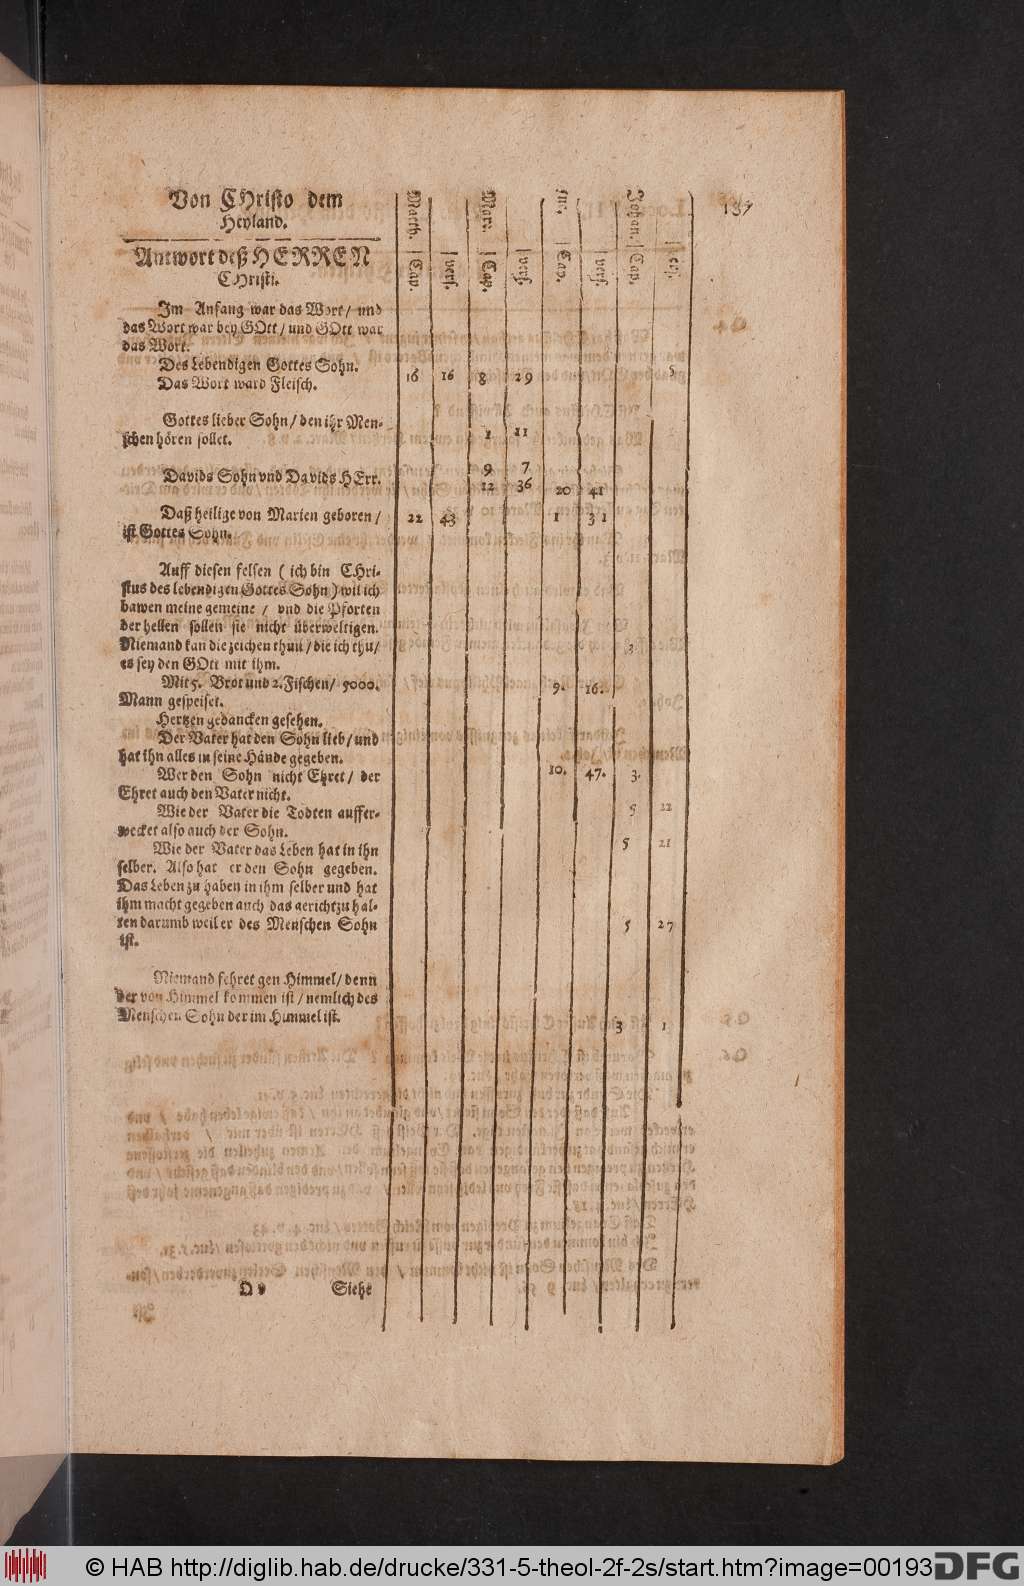 Von CHristo dem
Heyland.
137
Matth. | Cap. | vers. Marc. | Cap. | vers. Luc. | Cap. | vers. Johan. | Cap. | vers.
Antwort deß HERREN
CHristi.
Im Anfang war das Wort / und
das Wort war bey GOtt / und GOtt war
das Wort.
Des Lebendigen Gottes Sohn.
16 16 8 29 5
Das Wort ward Fleisch.
Gottes lieber Sohn / den ihr Men-
schen hören sollet.
1 11
9 7
Davids Sohn vnd Davids HErr.
12 36 20 41
Daß heilige von Marien geboren /
22 43 1 31
ist Gottes Sohn.
Auff diesen felsen ( ich bin CHri-
stus des lebendigen Gottes Sohn ) wil ich
bawen meine gemeine / vnd die Pforten
der hellen sollen sie nicht überweltigen.
Niemand kan die zeichen thun / die ich thu /
3
es sey den GOtt mit ihm.
Mit 5. Brot und 2. Fischen / 5000.
9. 16.
Mann gespeiset.
Hertzen gedancken gesehen.
Der Vater hat den Sohn lieb / und
hat ihn alles in seine Hände gegeben.
10. 47. 3.
Wer den Sohn nicht Ehret / der
Ehret auch den Vater nicht.
Wie der Vater die Todten auffer-
5 22
wecket also auch der Sohn.
Wie der Vater das Leben hat in ihn
5 21
selber. Also hat er den Sohn gegeben.
Das Leben zu haben in ihm selber und hat
ihm macht gegeben auch das gericht zu hal-
ten darumb weil er des Menschen Sohn
5 27
ist.
Niemand fehret gen Himmel / denn
der von Himmel kommen ist / nemlich des
Menschen Sohn der im Himmel ist.
3 1
Siehe
© HAB http://diglib.hab.de/drucke/331-5-theol-2f-2s/start.htm?image=00193
DFG